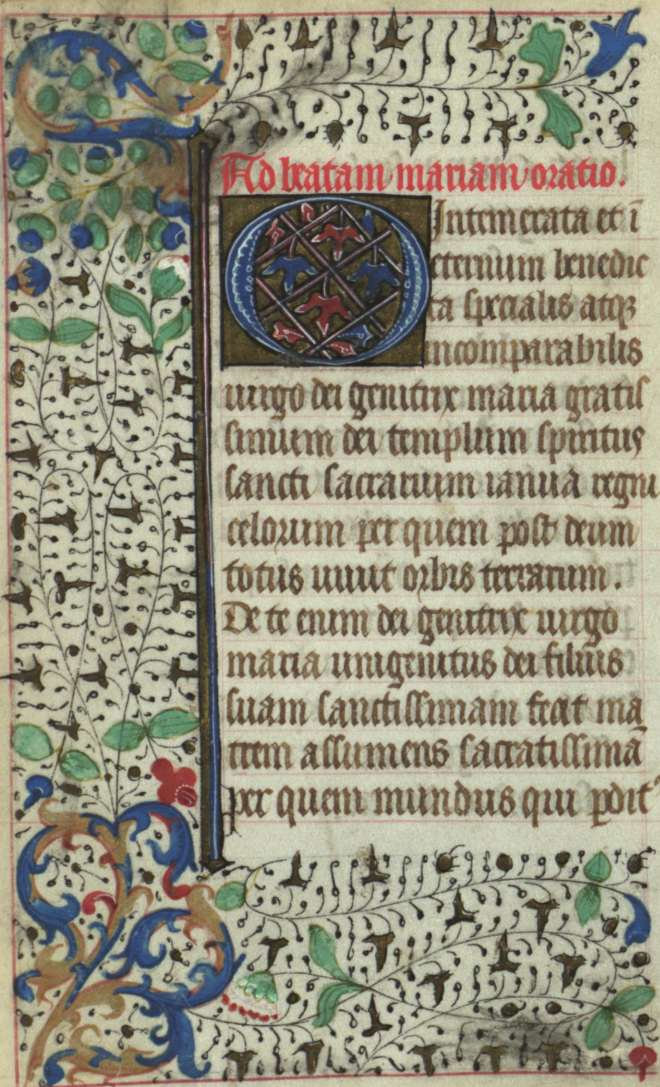 Ad beatam mariam oratio.
O Intemerata et ī
eternum benedic
ta specialis atqꝫ
incomparabilis
uirgo dei genitrix maria gratis
simum dei templum spiritus
sancti sacrarium ianua regni
celorum per quem post deum
totus uiuit orbis terrarum.
De te enim dei genitrix uirgo
maria unigenitus dei filius
suam sanctissimam fecit ma
trem assumens sacratissimā
per quem mundus qui ꝑdit᷒